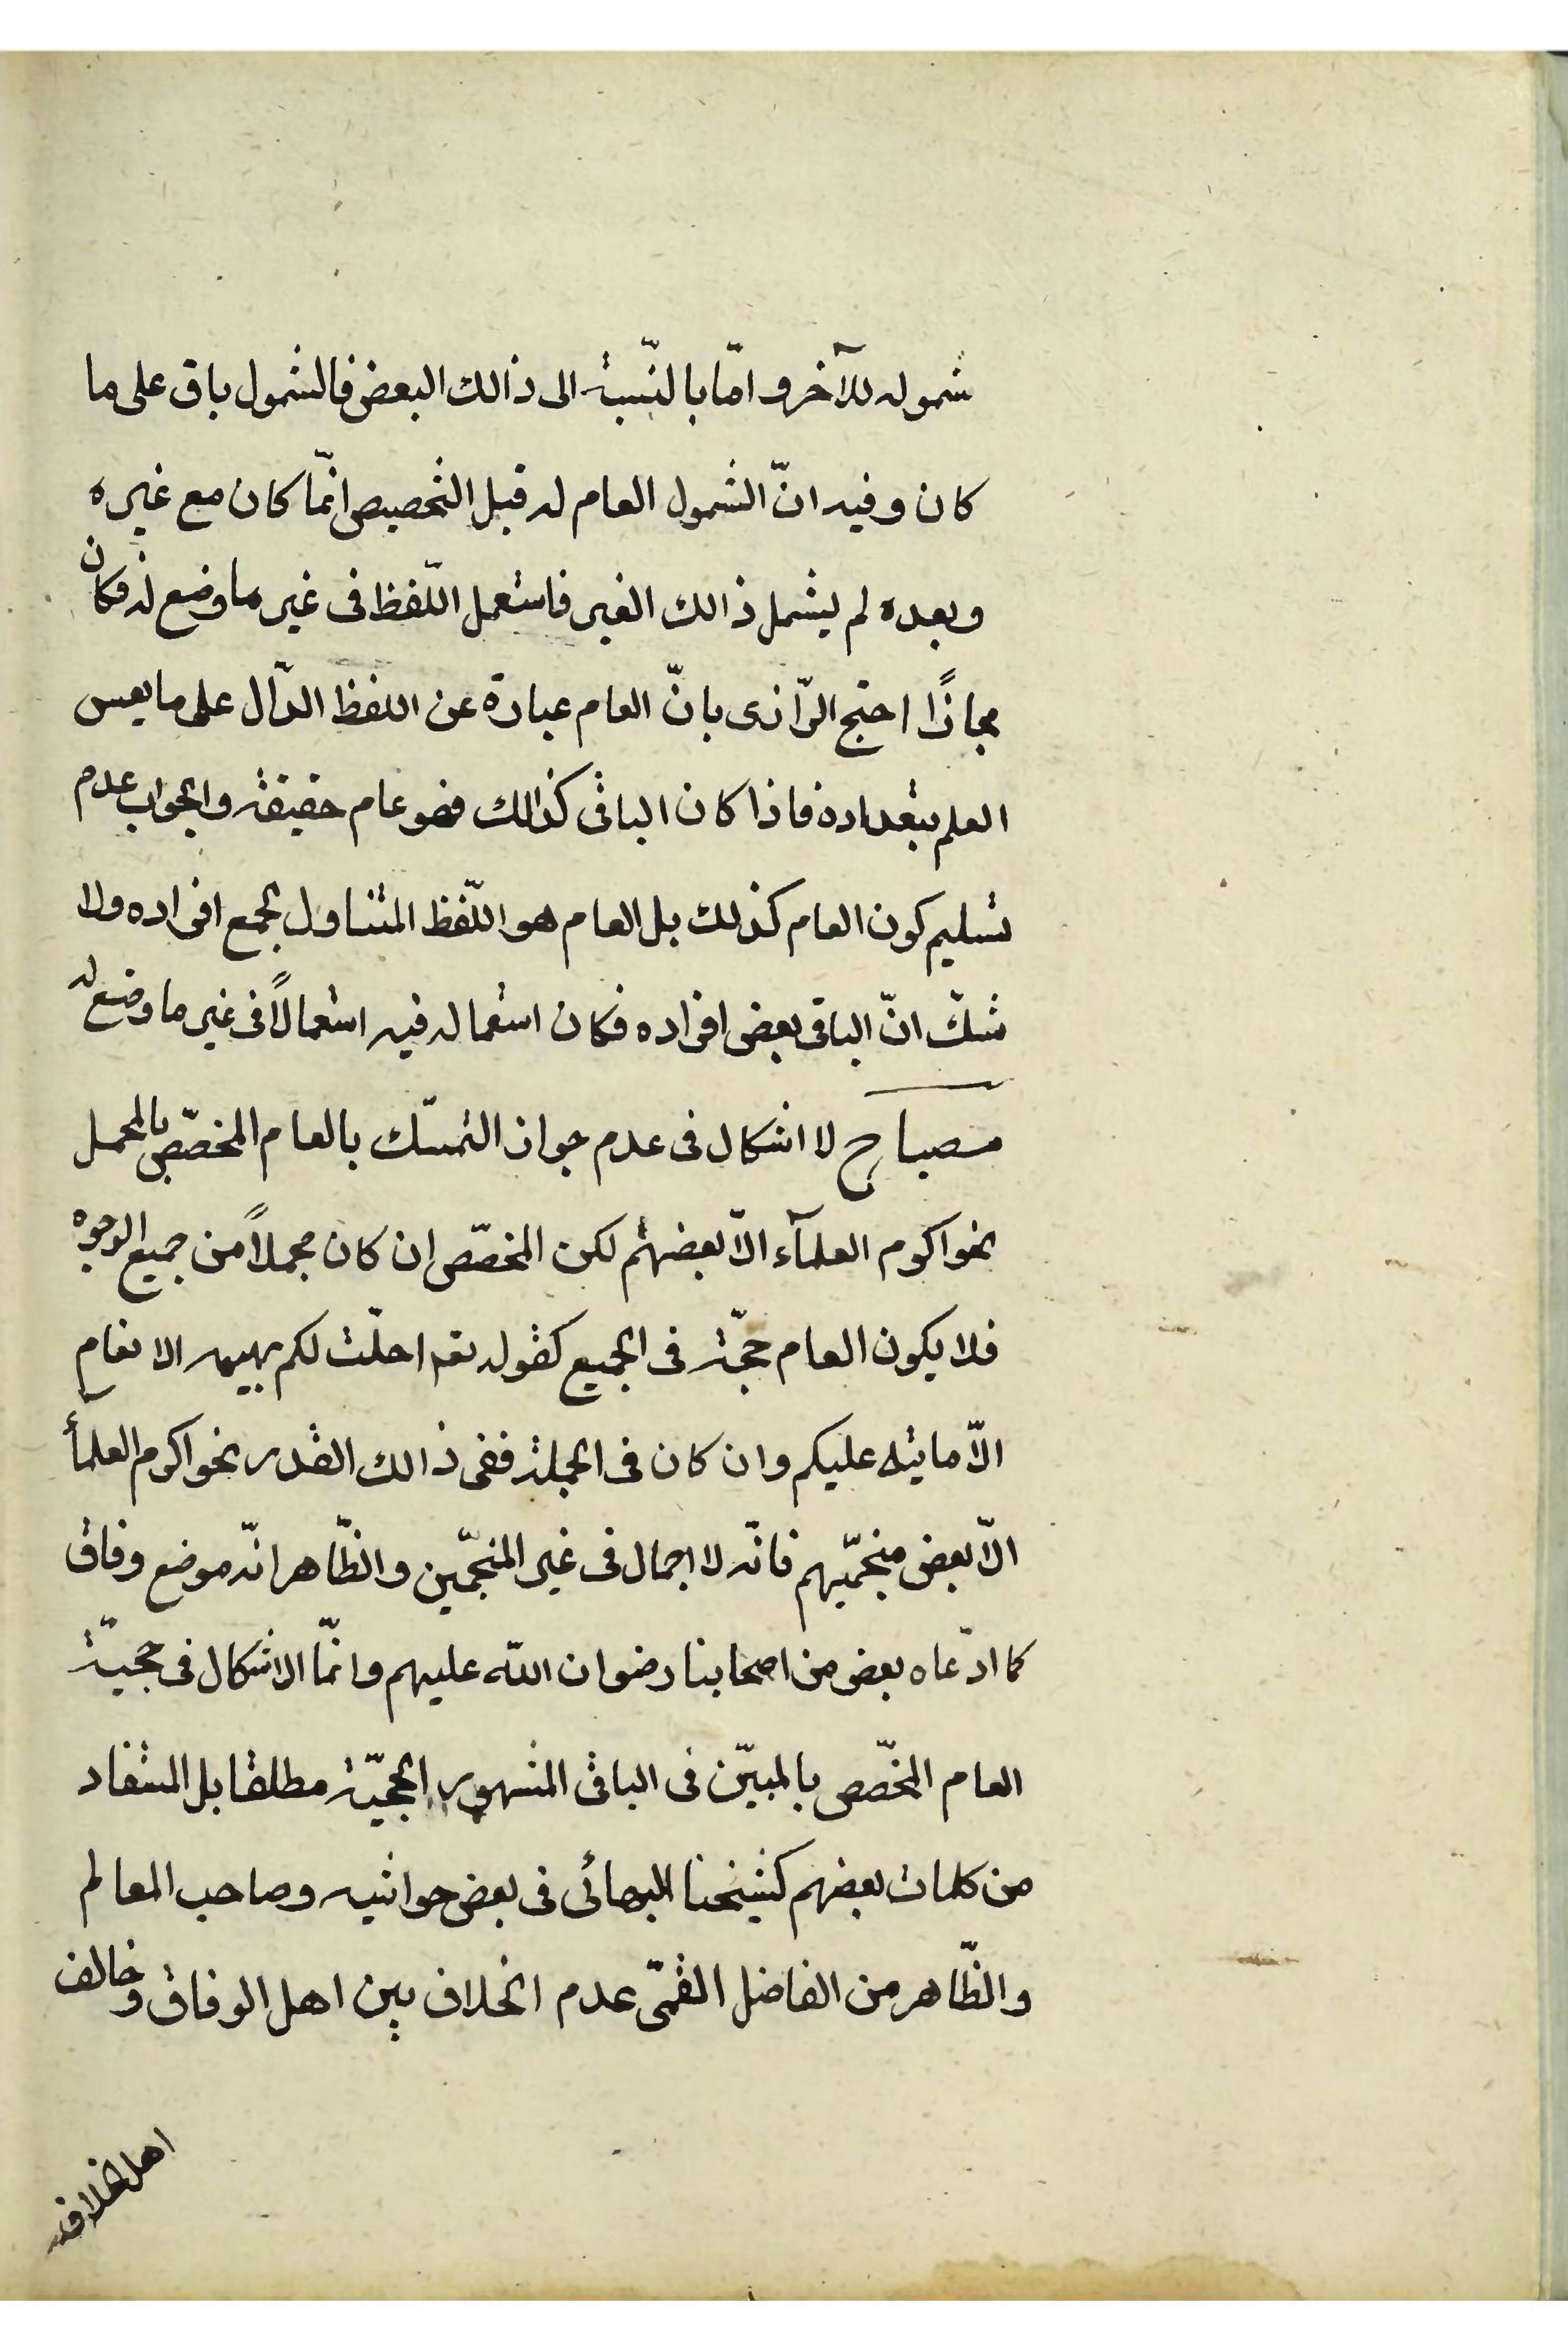 شموله للآخر و امّا بالنّسبة الى ذالك البعض فالشمول باق على ما
كان و فيه انّ الشمول العام له قبل التخصيص انّما كان مع غيره
و بعده لم يشمل ذالك الغير فاستعمل اللّفظ فى غير ما وضع له فكان
مجازًا احتج الرّازى بانّ العام عبارة عن اللفظ الدّال على ما يعسر
العلم بتعداده فاذا كان الباقى كذالك فهو عام حقيقة و الجواب عدم
تسليم كون العام كذلك بل العام هو اللّفظ المتناول لجمع افراده ولا
شكّ انّ الباقى بعض افراده فكان استعماله فيه استعمالًا فى غير ما وضع له
مصباح لا اشكال فى عدم جواز التمسّك بالعام المخصّص بالمجمل
نحو اكرم العلمآء الّا بعضهم لكن المخصّص ان كان مجملاً من جميع الوجوه
فلا يكون العام حجّة فى الجميع كقوله تعم احلّت لكم بهيمه الانعام
الّا ما يتلى عليكم وان كان فى الجملة ففى ذالك القدر نحو اكرم العلمآء
الّا بعض منجّميهم فانّه لا اجمال فى غير المنجّمين و الظّاهر انّه موضع وفاق
كما ادّعاه بعض من اصحابنا رضوان اللّه عليهم وانّما الاشكال فى حجيّة
العام المخصّص بالمبيّن فى الباقى المشهور الحجيّة مطلقا بل المستفاد
من كلمات بعضهم كشيخنا البهائى فى بعض حواشيه و صاحب المعالم
و الظّاهر من الفاضل القمّى عدم الخلاف بين اهل الوفاق و خالف
اهل الخلاف